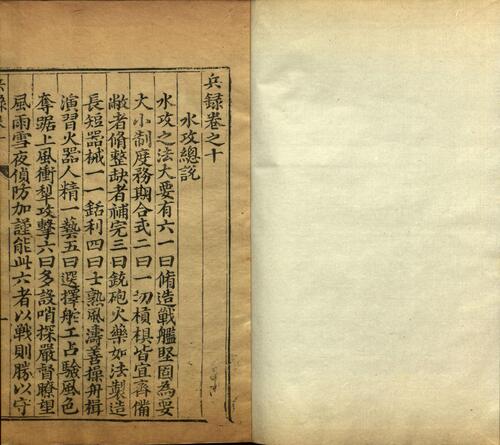 兵録卷之十
水攻總説
水攻之法大要有六一曰脩造戰艦堅固為妥
大小制度務期合式二曰一切槓椇皆宜齊備
敝者脩整缺者補完三曰銃砲火藥如法製造
長短器械一一銛利四曰士熟風濤善操舟楫
演習火器人精一藝五曰選擇舵工占驗風色
奪踞上風衝犁攻擊六曰多設哨探嚴督瞭望
風雨雪夜偵防加謹能此六者以戰則勝以守
兵録卷十